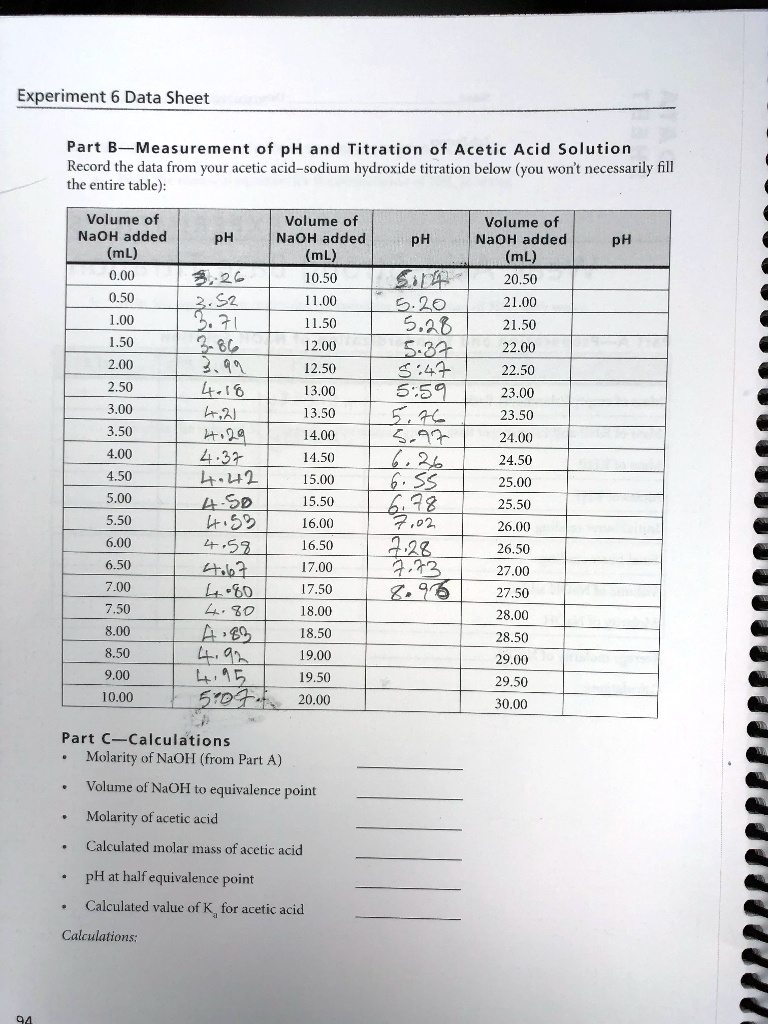 Experiment 6 Data Sheet
Part B—Measurement of pH and Titration of Acetic Acid Solution
Record the data from your acetic acid–sodium hydroxide titration below (you won't necessarily fill
the entire table):
Volume of NaOH added (mL) pH Volume of NaOH added (mL) pH Volume of NaOH added (mL) pH
0.00 3.26 10.50 5.14 20.50
0.50 3.52 11.00 5.20 21.00
1.00 3.71 11.50 5.28 21.50
1.50 3.86 12.00 5.37 22.00
2.00 3.99 12.50 5.47 22.50
2.50 4.18 13.00 5.59 23.00
3.00 4.21 13.50 5.76 23.50
3.50 4.29 14.00 5.97 24.00
4.00 4.37 14.50 6.26 24.50
4.50 4.42 15.00 6.55 25.00
5.00 4.50 15.50 6.78 25.50
5.50 4.53 16.00 7.02 26.00
6.00 4.58 16.50 7.28 26.50
6.50 4.67 17.00 7.73 27.00
7.00 4.80 17.50 27.50
7.50 4.80 18.00 28.00
8.00 4.83 18.50 28.50
8.50 4.92 19.00 29.00
9.00 4.95 19.50 29.50
10.00 5.07 20.00 30.00
Part C—Calculations
• Molarity of NaOH (from Part A)
• Volume of NaOH to equivalence point
• Molarity of acetic acid
• Calculated molar mass of acetic acid
• pH at half equivalence point
• Calculated value of Ka for acetic acid
Calculations:
94